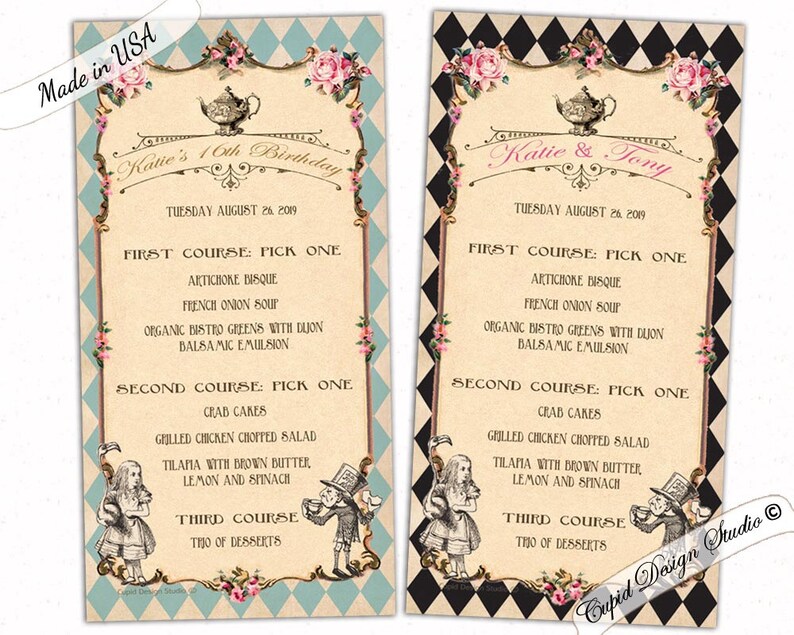 Made in USA
Katie's 16th Birthday
TUESDAY AUGUST 26, 2019
FIRST COURSE: PICK ONE
ARTICHOKE BISQUE
FRENCH ONION SOUP
ORGANIC BISTRO GREENS WITH DIJON
BALSAMIC EMULSION
SECOND COURSE: PICK ONE
CRAB CAKES
GRILLED CHICKEN CHOPPED SALAD
TILAPIA WITH BROWN BUTTER,
LEMON AND SPINACH
THIRD COURSE
TRIO OF DESSERTS
Cupid Design Studio ©
Katie & Tony
TUESDAY AUGUST 26, 2019
FIRST COURSE: PICK ONE
ARTICHOKE BISQUE
FRENCH ONION SOUP
ORGANIC BISTRO GREENS WITH DIJON
BALSAMIC EMULSION
SECOND COURSE: PICK ONE
CRAB CAKES
GRILLED CHICKEN CHOPPED SALAD
TILAPIA WITH BROWN BUTTER,
LEMON AND SPINACH
THIRD COURSE
TRIO OF DESSERTS
Cupid Design Studio ©